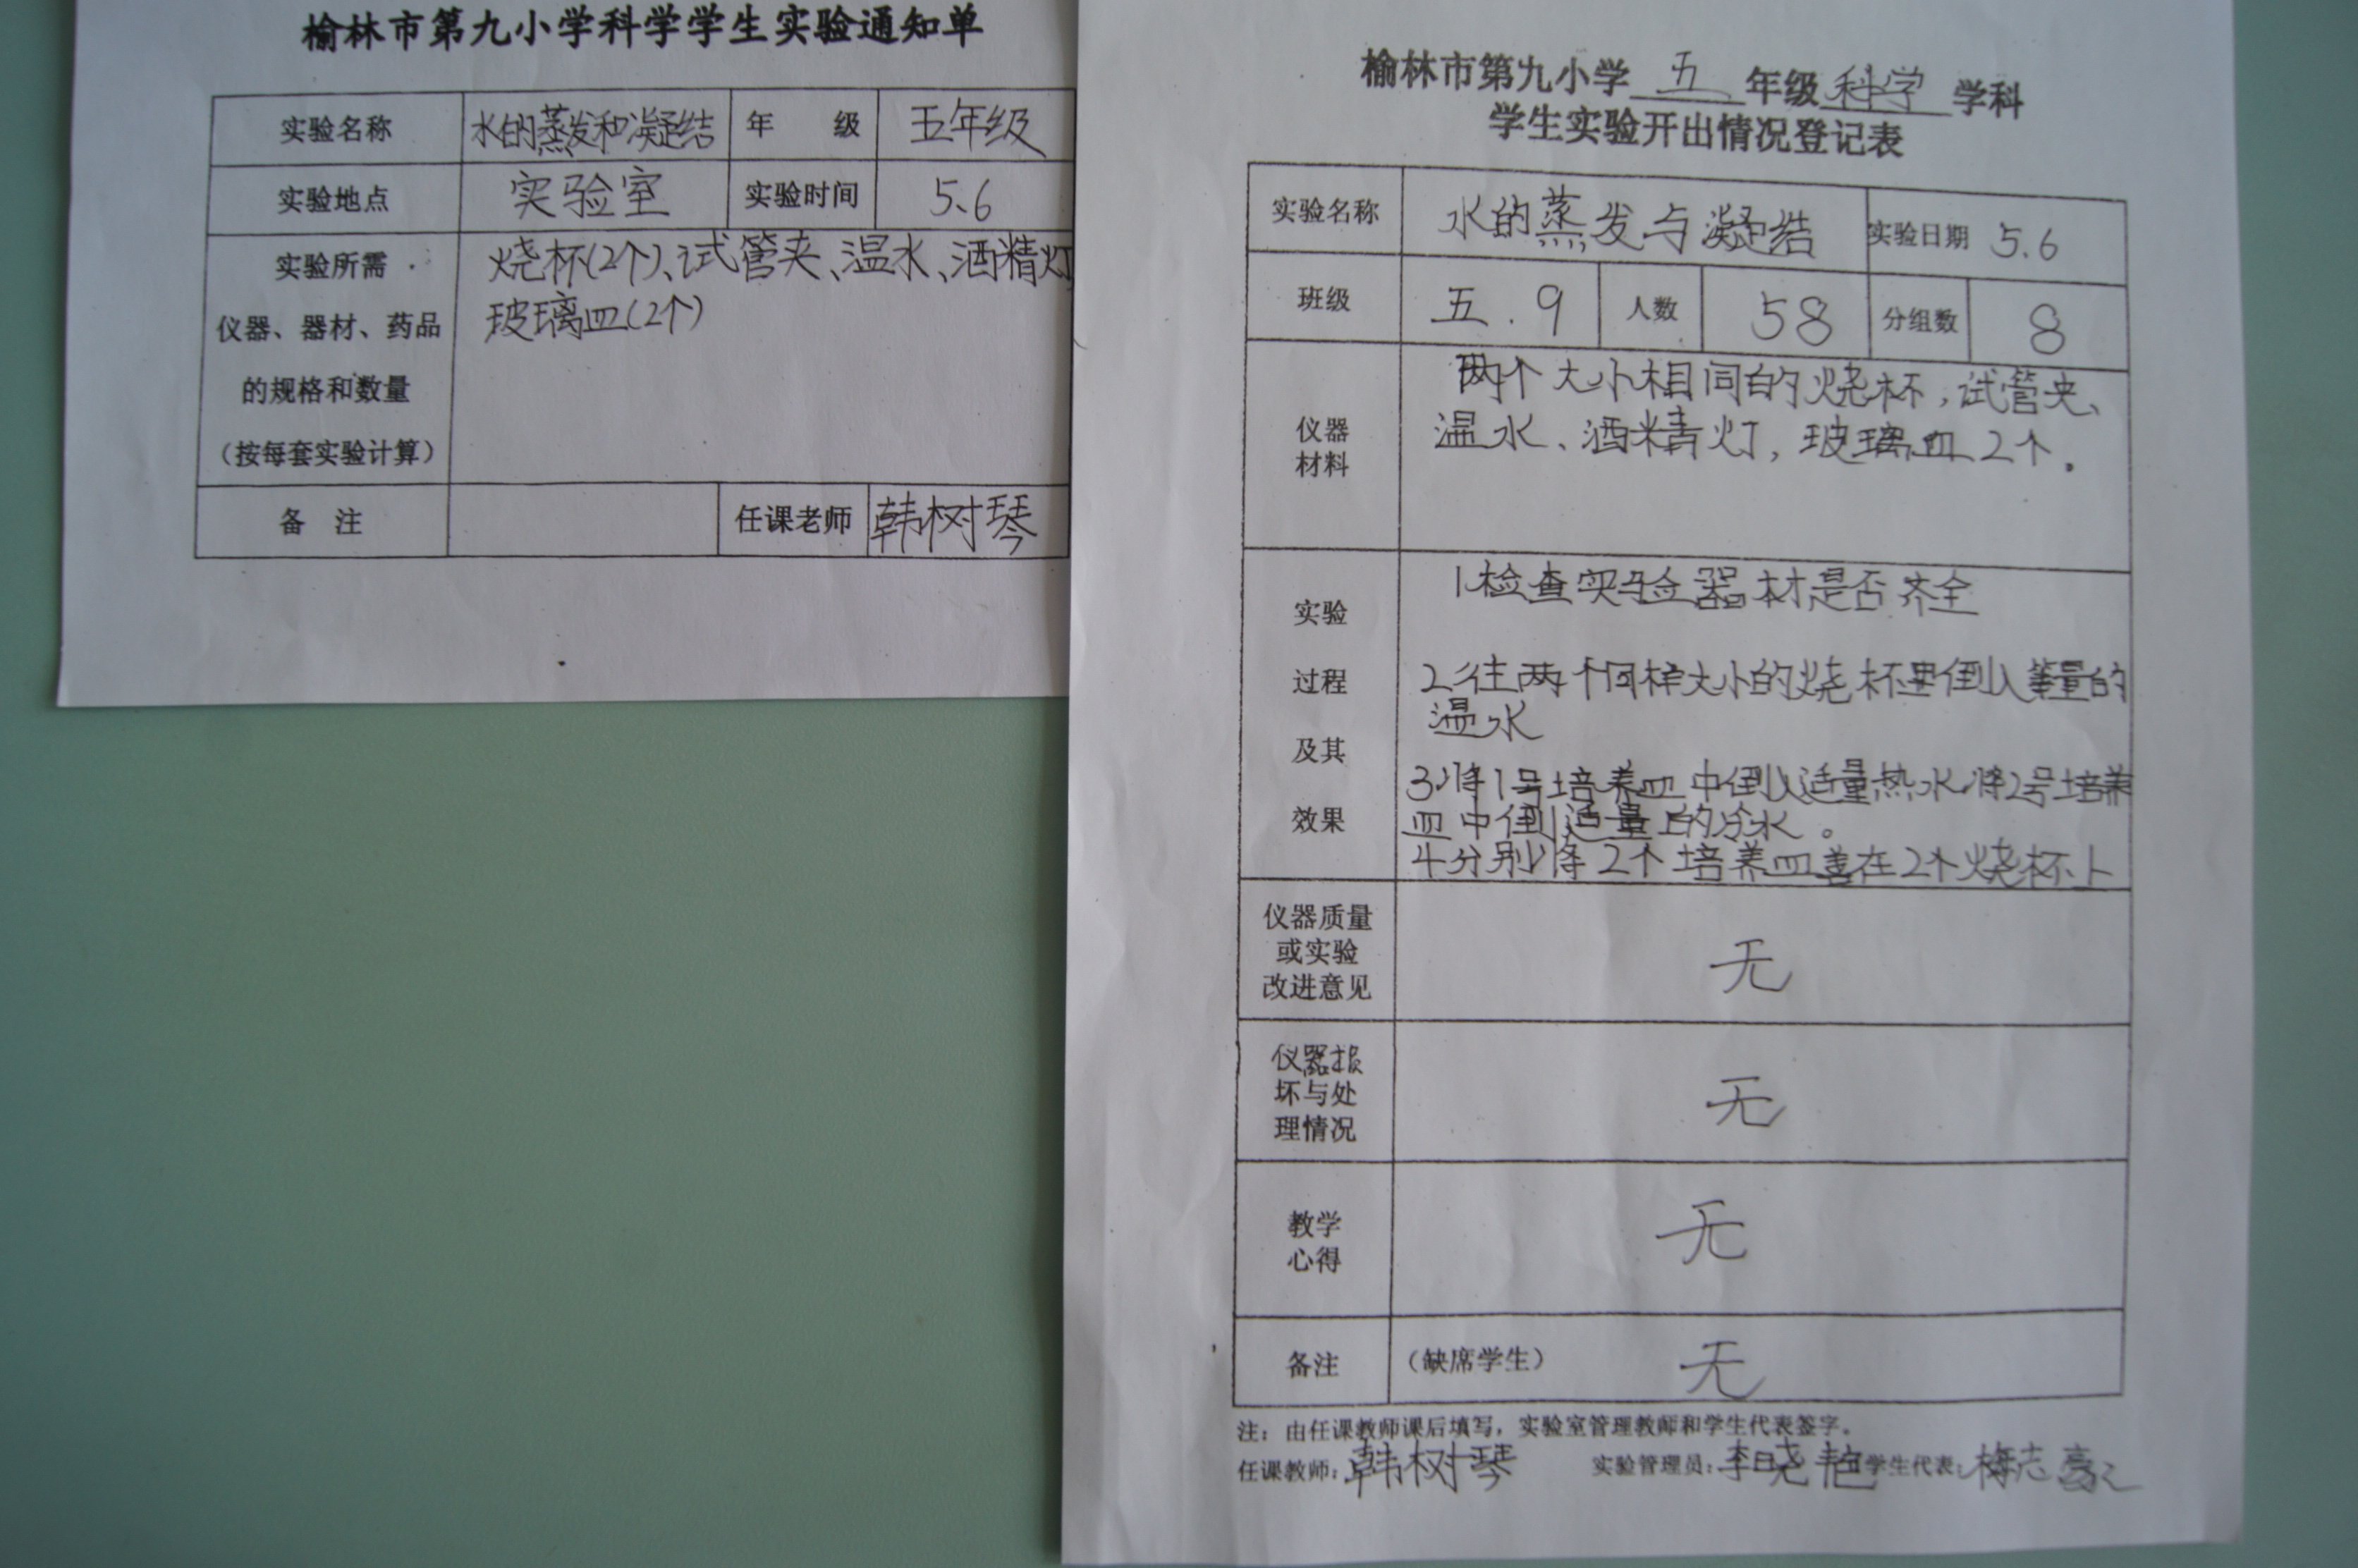 榆林市第九小学科学学生实验通知单
实验名称 水的蒸发和凝结 年 级 五年级
实验地点 实验室 实验时间 5.6
实验所需
仪器、器材、药品
的规格和数量
（按每套实验计算）
烧杯(2个)、试管夹、温水、酒精灯
玻璃皿(2个)
备 注 任课老师 韩树琴
榆林市第九小学 五 年级 科学 学科
学生实验开出情况登记表
实验名称 水的蒸发与凝结 实验日期 5.6
班级 五.9 人数 58 分组数 8
仪器
材料
两个大小相同的烧杯，试管夹、
温水、酒精灯，玻璃皿2个。
实验
过程
及其
效果
1.检查实验器材是否齐全
2.往两个同样大小的烧杯里倒入等量的
温水
3.将1号培养皿中倒入适量热水,将2号培养
皿中倒适量的冷水。
4分别将2个培养皿盖在2个烧杯上
仪器质量
或实验
改进意见
无
仪器损
坏与处
理情况
无
教学
心得
无
备注 （缺席学生） 无
注：由任课教师课后填写，实验室管理教师和学生代表签字。
任课教师：韩树琴 实验管理员：李晓艳 学生代表：志豪